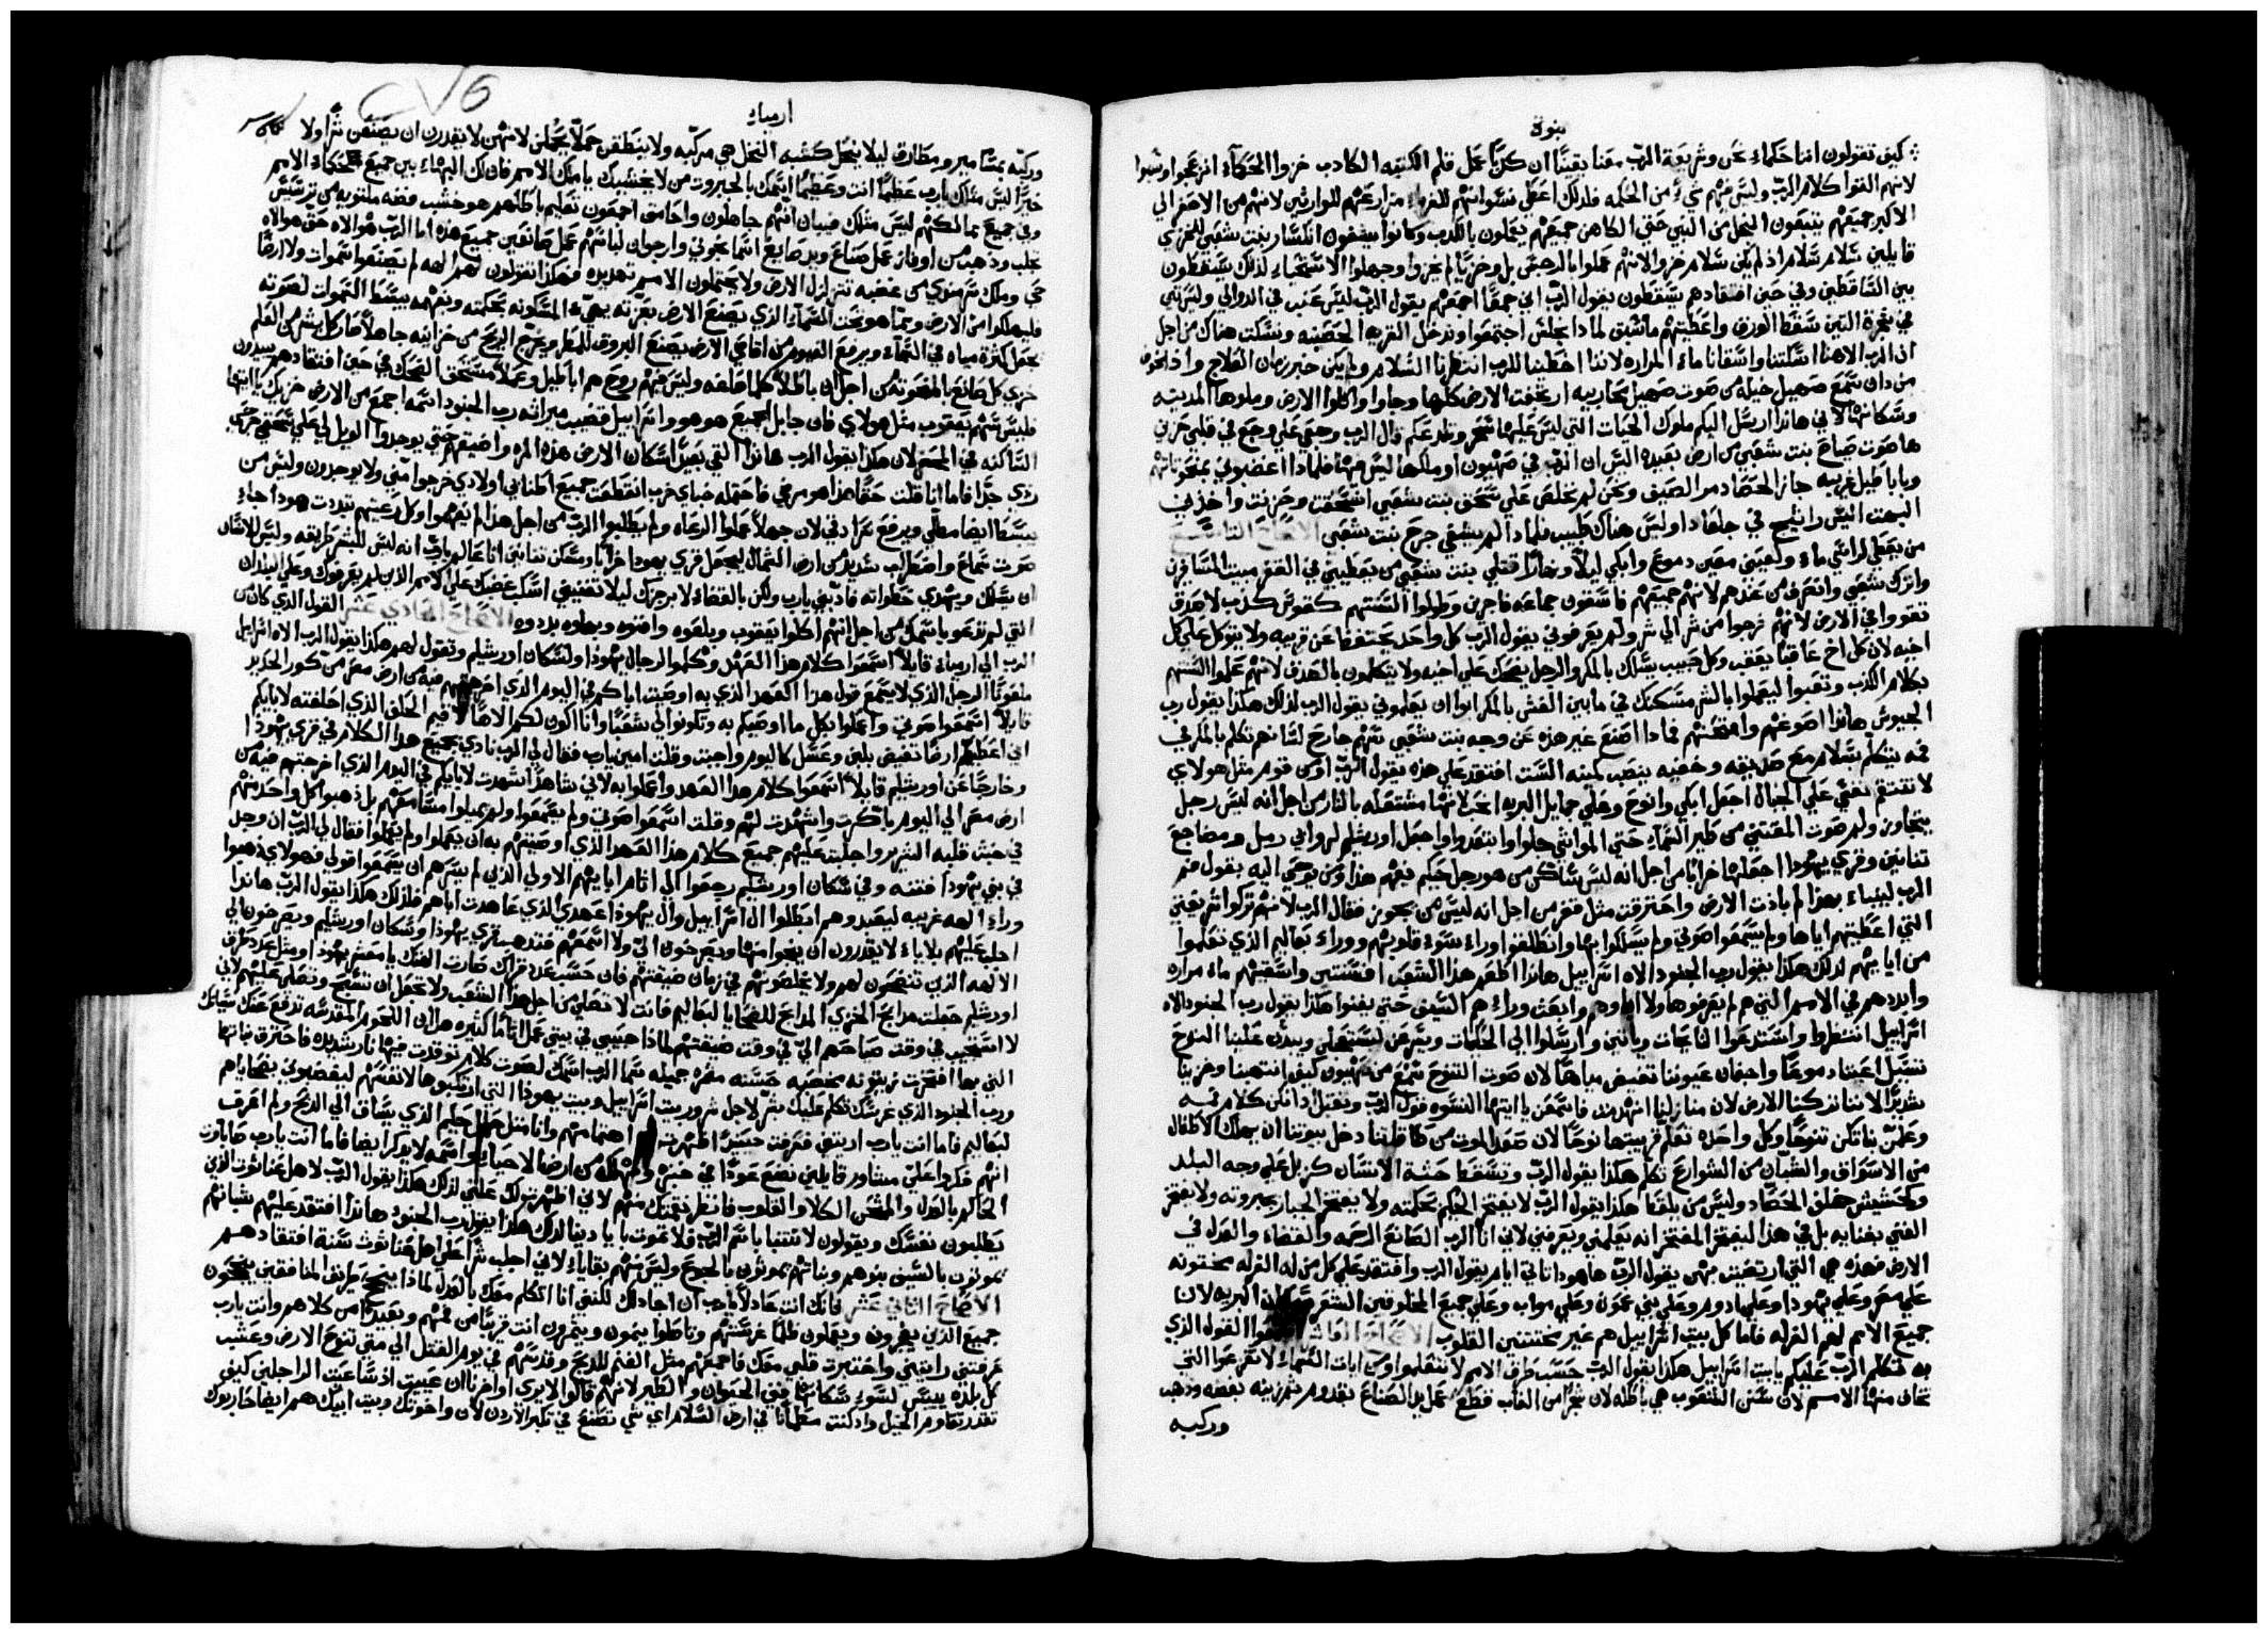 نبوة
كيف تقولون اننا حكماء نحن وشريعة الرب معنا يقينًا ان كذبًا عمل قلم الكتبه الكادب خزوا الحكماء انزعجوا وسبوا
لانهم القوا كلام الرب وليس فيهم شيء من الحكمه فلدلك اعطي نسوانهم للغرباء مزارعهم للوارثين لانهم من الاصغر الي
الاكبر جميعهم يتبعون البخل من النبي حتي الكاهن جميعهم يعملون بالكدب وكانوا يشفون انكسار بنت شعبي للخزي
قايلين سلام سلام اذ لم يكن سلام خزوا لانهم عملوا بالرجس بل وخزيًا لم يخزوا وجهلوا الاستحياء لدلك يسقطون
بين الساقطين وفي حين افتقادهم يسقطون يقول الرب اني جمعًا اجمعهم يقول الرب ليس عنب في الدوالي وليس تين
في شجرة التين سقط الورق واعطيتهم ما سبق لمادا نجلس اجتمعوا وندخل القريه الحصينه ونسكت هناك من اجل
ان الرب الاهنا اسكتنا واسقانا ماء المراره لاننا اخطينا للرب انتظرنا السلام ولم يكن خير زمان العلاج واذا بخوف
من دان سمع صهيل خيله من صوت صهيل محاربيه ارتجفت الارض كلها وجاوا واكلوا الارض وملوها المدينه
وسكانها لاني هانذا ارسل اليكم ملوك الحيات التي ليس عليها سحر وتلدغكم قال الرب وجعي علي وجع في قلبي حزين
ها صوت صياح بنت شعبي من ارض بعيده اليس ان الرب في صهيون او ملكها ليس فيها فلمادا اغضبوني بمنحوتاتهم
وباباطيل غريبه جاز الحصاد مر الصيف ونحن لم نخلص علي سحق بنت شعبي انسحقت وحزنت واخذني
البهت اليس راتينج في جلعاد اوليس هناك طبيب فلمادا لم يشفي جرح بنت شعبي الاصحاح التاسع
من يعطي لراسي ماء ولعيني معين دموع وابكي ليلًا ونهارًا قتلي بنت شعبي من يعطيني في القفر مبيت المسافرين
واترك شعبي وانصرف من عندهم لانهم جميعهم فاسقون جماعه فاجرين وطولوا السنتهم كقوس كذب لا صدق
تقووا في الارض لانهم خرجوا من شر الي شر ولم يعرفوني يقول الرب كل واحد يحتفظ عن قريبه ولا يتوكل علي كل
اخيه لان كل اخ عاقبًا يعقب وكل حبيب يسلك بالمكر والرجل يضحك علي اخيه ولا يتكلمون بالصدق لانهم علموا السنتهم
بكلام الكدب وتعبوا ليعملوا بالشر مسكنك في ما بين الغش بالمكر ابوا ان يعلموني يقول الرب لدلك هكذا يقول رب
الجيوش هانذا اصوغهم وامتحنهم فمادا اصنع غير هذه عن وجه بنت شعبي سهم جارح لسانهم تكلم بالمكر في
فمه يتكلم بسلام مع صديقه وخفيه ينصب لمينه الست افتقد علي هذه يقول الرب او من قوم مثل هولاي
لا تنتقم نفسي علي الجبال اجعل ابكي وانوح وعلي جمايل البريه انحب لانها مشتعله بالنار من اجل انه ليس رجل
يتجاوز ولم صوت المقتني من طير السماء حتي المواشي جلوا وابتعدوا واجعل اورشليم لروابي رمل ومضاجع
تنانين وقري يهودا اجعلها خرابًا من اجل انه ليس ساكن من هو رجل حكيم فيفهم هذا ومن يوحي اليه بقول فم
الرب لينبا بهذا لم بادت الارض واحترقت مثل قفر من اجل انه ليس من يجوز فقال الرب لانهم تركوا شريعتي
التي اعطيتهم اياها ولم يسمعوا صوتي ولم يسلكوا بها وانطلقوا وراء سوء قلوبهم ووراء بعاليم الذي تعلموا
من ابايهم لدلك هكذا يقول رب الجنود الاه اسراييل هانذا اطعم هذا الشعب افسنتين واسقيهم ماء مراره
وابددهم في الامم التي لم يعرفوها ولا اباوهم وابعث وراءهم السيف حتي يفنوا هكذا يقول رب الجنود الاه
اسراييل انتظروا واستدعوا النايحات وياتين وارسلوا الي الحكيمات ويسرعن ليستعجلن ويبدين علينا النوح
تسبل اعيننا دموعًا واجفان عيوننا تفيض مياهًا لان صوت النوح سمع من صهيون كيف انتهبنا وخزينا
شديدًا لاننا تركنا الارض لان منازلنا انهدمت فاسمعن يا ايتها النسوه قول الرب وتقبل اذانكن كلام فمه
وعلمن بناتكن تنوحًا وكل واحده تعلم قريبتها نوحًا لان صعد الموت من طاقاتنا دخل بيوتنا ان يهلك الاطفال
من الاسواق والشبان من الشوارع تكلم هكذا يقول الرب وتسقط جثة الانسان كزبل علي وجه البلد
وكحشيش خلف الحصاد وليس من يلقط هكذا يقول الرب لا يفتخر الحكيم بحكمته ولا يفتخر الجبار بجبروته ولا يفتخر
الغني بغنايه بل في هذا ليفتخر المفتخر انه يعلمني ويعرفني لاني انا الرب الصانع الرحمه والقضاء والعدل في
الارض فهذه هي التي ارتضيت بهن يقول الرب ها هودا تاتي ايام يقول الرب وافتقد علي كل من له الغرله مختونه
علي مصر وعلي يهودا وعلي ادوم وعلي بني عمون وعلي مواب وعلي جميع المحلوقين الشعر سكان البريه لان
جميع الامم لهم الغرله فاما كل بيت اسراييل هم غير مختتنين القلوب الاصحاح العاشر اسمعوا القول الذي
به تكلم الرب عليكم يا بيت اسراييل هكذا يقول الرب حسب طرق الامم لا تتعلموا ومن ايات السماء لا تفزعوا التي
تخاف منها الامم لان سنن الشعوب هي باطله لان شجرًا من الغاب قطع عمل يد الصناع بقدوم شم زينه بفضه وذهب
وركبه
ارمياء
وركبه بمسامير ومطارق ليلا ينحل كشبه النخل هي مركبه ولا ينطقن حملًا يحملن لانهن لا يقدرن ان يصنعن شرًا ولا
خيرًا ليس مثلك يا رب عظيمًا انت وعظيمًا اسمك بالجبروت من لا يخشيك يا ملك الامم فان لك البهاء بين جميع حكماء الامم
وفي جميع ممالكهم ليس مثلك فيبان انهم جاهلون واحامق اجمعون تعليم باطلهم هو خشب فضه ملتويه من ترشيش
تجلب وذهب من اوفاز عمل صناع ويد صايغ اسمانجوني وارجوان لباسهم عمل صانعين جميع هذه اما الرب هو الاه حق هو الاه
حي وملك سرمدي من غضبه تتزلزل الارض ولا يحتملون الامم تهديده فهكذا تقولون لهم الهه لم يصنعوا سموات ولا ارضًا
فليهلكوا من الارض ومما هو تحت السماء الذي يصنع الارض بعزته يهيء المسكونه بحكمته وبفهمه يبسط السموات لصوته
يجعل كثرة مياه في السماء ويرفع الغيوم من اقاصي الارض يصنع البروق للمطر ويخرج الريح من خزاينه جاهلًا صار كل بشر من العلم
خزي كل صانع بالمنحوته من اجل ان باطلًا كلما خلقه وليس فيهم روح هم اباطيل وعملًا مستحق الضحك في حين افتقادهم يبيدون
فليس سهم يعقوب مثل هولاي فان جابل الجميع هو هو واسراييل قضيب ميراثه رب الجنود اسمه اجمعي من الارض خزيك يا ايتها
الساكنه في الحصر لان هكذا يقول الرب هانذا القي بعيدًا سكان الارض هذه المره واضيقهم حتي يوجدوا الويل لي علي سحقي جرحي
ردي جدًا فاما انا قلت حقًا هذا هو مرضي فاحتمله خباي خرب انقطعت جميع اطنابي اولادي خرجوا مني ولا يوجدون وليس من
يبسط ايضا مظلي ويرفع سرادقي لان جهلًا عملوا الرعاه ولم يطلبوا الرب من اجل هذا لم يفهموا وكل رعيتهم تبددت هودا جاء
صوت سماع واضطراب شديد من ارض الشمال ليجعل قري يهودا خرابًا ومسكن تنانين انا عالم يا رب انه ليس للبشر طريقه وليس للانسان
ان يسلك ويهدي خطواته فادبني يا رب ولكن بالقضاء لا برجزك ليلا تفنيني اسكب غضبك علي الامم الذين لم يعرفوك وعلي البلدان
التي لم تدعو باسمك من اجل انهم اكلوا يعقوب وبلعوه وافنوه وبهاوه بددوه الاصحاح الحادي عشر القول الذي كان من
الرب الي ارمياء قايلًا اسمعوا كلام هذا العهد وكلموا لرجال يهودا ولسكان اورشليم وتقول لهم هكذا يقول الرب الاه اسراييل
ملعونًا الرجل الذي لا يسمع قول هذا العهد الذي به اوصيت اباكم في اليوم الذي اخرجتهم فيه من ارض مصر من كور الحديد
قايلًا اسمعوا صوتي واعملوا بكل ما اوصيكم به وتكونوا لي شعبًا وانا اكون لكم الاهًا لاقيم الحلف الذي احلفته لابايكم
اني اعطيهم ارضًا تفيض بلبن وعسل كاليوم واجبت وقلت امين يا رب فقال لي الرب نادي بجميع هذا الكلام في قري يهودا
وخارجًا عن اورشليم قايلًا اسمعوا كلام هذا العهد واعملوا به لاني شاهدًا اشهدت لابايكم في اليوم الذي اخرجتهم فيه من
ارض مصر الي اليوم باكرت واشهدت لهم وقلت اسمعوا صوتي ولم يسمعوا ولم يميلوا مسامعهم بل ذهبوا كل واحد منهم
في خبث قلبه الشرير واجلبت عليهم جميع كلام هذا العهد الذي اوصيتهم به ان يعملوا ولم يعملوا فقال لي الرب ان وجد
في بني يهودا فتنه وفي سكان اورشليم رجعوا الي اثام ابايهم الاولي الذين لم يسرهم ان يسمعوا قولي فهولاي ذهبوا
وراء الهه غريبه ليعبدوهم ابطلوا ال اسراييل وال يهودا عهدي الذي عاهدت اباهم فلذلك هكذا يقول الرب هانذا
اجلب عليهم بلاياء لا يقدرون ان ينجوا منها ويصرخون الي ولا اسمعهم فتذهب قري يهودا وسكان اورشليم ويصرخون الي
الالهه الذي تنضحون لهم ولا يخلصونهم في زمان ضيقتهم فان حسب عدد قراك صارت الهتك يا معشر يهودا ومثل عدد طرق
اورشليم جعلت مذابح الخزي المذابح للضحايا لبعاليم فانت لا تصلي من اجل هذا الشعب ولا تجعل ان تسبح وتصلي عليهم لاني
لا استجيب في وقت صياحهم الي في وقت ضيقتهم لماذا حبيبي في بيتي عمل اثامًا كثيره هل ان اللحوم المقدسه ترفع عنك سياتك
التي بها افتخرت زيتونه مخضبه حسنه مثمره جميله سما الرب اسمك لصوت كلام توقدت فيها نار شديده فاحترق نباتها
ورب الجنود الذي غرسك تكلم عليك بشر لاجل شرور بيت اسراييل وبيت يهودا التي ارتكبوها لانفسهم ليغضبوني بضحاياهم
لبعاليم فاما انت يا رب اريتني فعرفت حينيذ اظهرت اهتمامهم وانا مثل حمل حليم الذي يساق الي الذبح ولم اعرف
انهم فكروا علي مشاور قايلين نضع عودًا في خبزه ونهلكه من ارض الاحياء واسمه لا يذكر ايضا فاما انت يا رب صاباوت
الحاكم بالعدل والممتحن الكلا والقلوب فانظر نقمتك منهم لاني اظهرت لك علتي لذلك هكذا يقول الرب لاهل عناثوث الذي
يطلبون نفسك ويقولون لا تتنبا باسم الرب ولا تموت بايادينا لدلك هكذا يقول رب الجنود هانذا افتقد عليهم شبانهم
يموتون بالسيف بنوهم وبناتهم يموتون بالجوع وليس منهم بقاياء لاني اجلب شرًا علي اهل عناثوث سنة افتقادهم
الاصحاح الثاني عشر فانك انت عادلًا يا رب ان اجادلك لكنني انا اتكلم معك بالعدل لماذا ينجح طريق المنافقين ينجحون
جميع الذين يفجرون ويعملون ظلمًا غرستهم وتاصلوا ينمون ويثمرون انت قريبًا من فمهم وبعيدًا من كلاهم وانت يا رب
عرفتني رايتني واختبرت قلبي معك فاجمعهم مثل الغنم للذبح وقدسهم في يوم القتل الي متي تنوح الارض وعشب
كل بلده ييبس لسوء سكانها فني الحيوان والطير لانهم قالوا لا يري اواخرنا ان عييت اذ ساعيت الراجلين كيف
تقدر تقاوم الخيل وادكنت مطمانًا في ارض السلام اي شي تصنع في تكبر الاردن لان واخوتك وبيت ابيك هم ايضا حاربوك